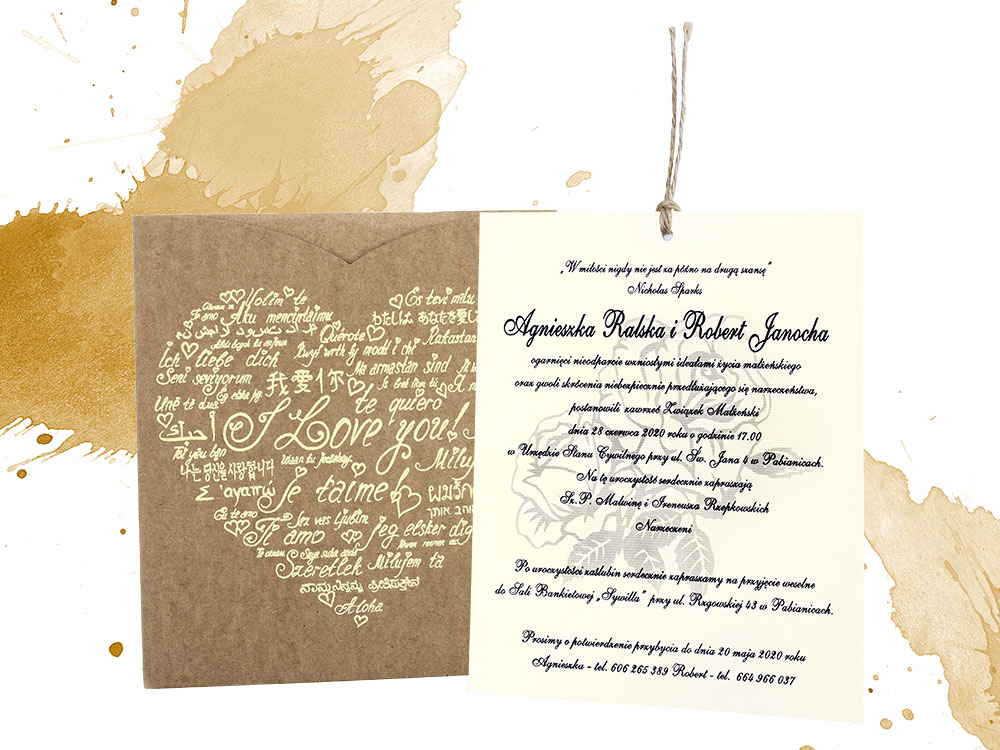 Volim te
Ti amo Aku mencintaimu
Ich liebe dich
Seni seviyorum
我愛你
Unë të dua
أحبك
I Love you!
te quiero
Es tevi mīlu
わたしは あなたを愛し
Quierote
Rakastan
Ma armastan sind
나는 당신을 사랑합니다
Σ'αγαπώ je t'aime!
Miluj
ผมรัก
Ti amo
Ja vas ljubim
Jeg elsker dig
Szeretlek Milujem ta
Aloha
„W miłości nigdy nie jest za późno na drugą szansę”
Nicholas Sparks
Agnieszka Ralska i Robert Janocha
ogarnięci nieodparcie wzniosłymi ideałami życia małżeńskiego
oraz gwoli skrócenia niebezpiecznie przedłużającego się narzeczeństwa,
postanowili zawrzeć Związek Małżeński
dnia 28 czerwca 2020 roku o godzinie 17.00
w Urzędzie Stanu Cywilnego przy ul. Św. Jana 4 w Pabianicach.
Na tę uroczystość serdecznie zapraszają
Sz.P. Malwinę i Ireneusza Rzepkowskich
Narzeczeni
Po uroczystości zaślubin serdecznie zapraszamy na przyjęcie weselne
do Sali Bankietowej „Sywilla” przy ul. Rzgowskiej 43 w Pabianicach.
Prosimy o potwierdzenie przybycia do dnia 20 maja 2020 roku
Agnieszka - tel. 606 265 389 Robert - tel. 664 966 037